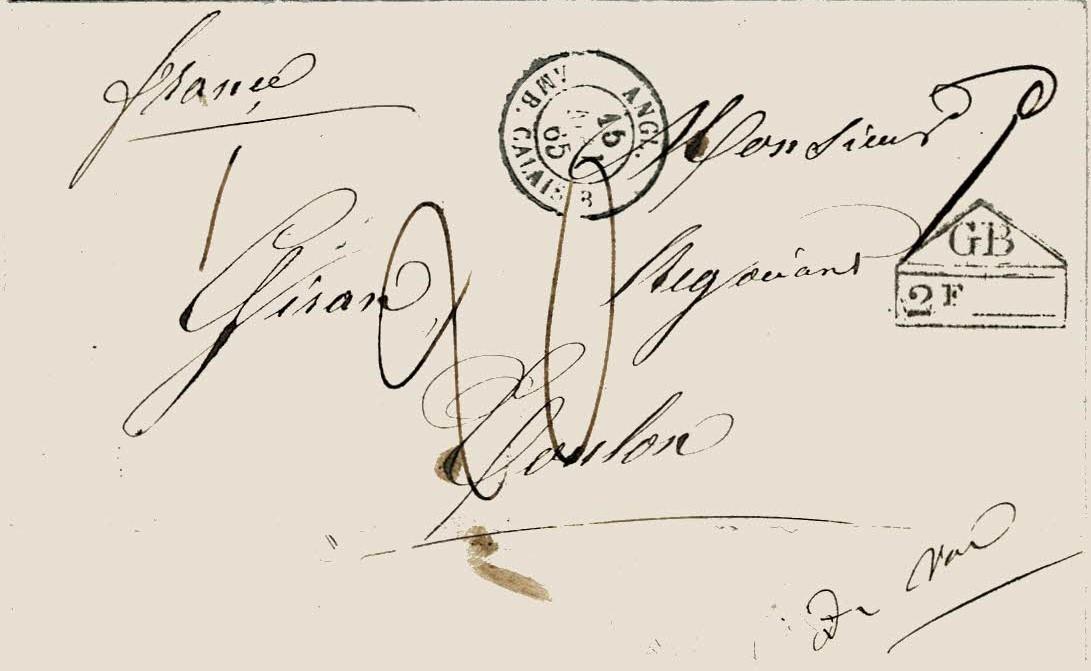 france
ANGL. AMB. CALAIS B
15
65
Monsieur
GB
2F
Giran, Negociant
Toulon
Du Var